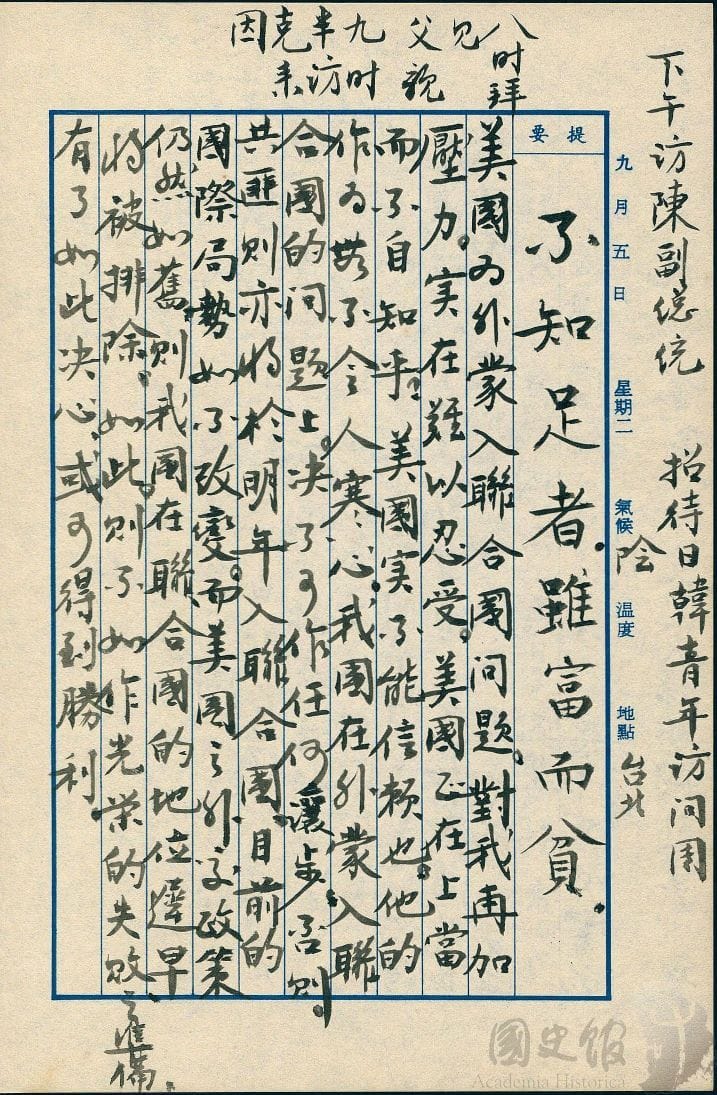 下午访陳副总统 招待日韓青年访问团
九月五日 星期二 氣候 陰 温度 地點 台北
八时拜
见
父親
九时
半访
克来
因
提要
不知足者。雖富而貧。
美國为外蒙入聯合國问題。對我再加
壓力。实在難以忍受。美國正在上當
而不自知乎。美國实不能信赖也。他的
作为無不令人寒心。我國在外蒙入聯
合國的问題上。决不可作任何讓步。否则
共匪则亦将於明年入聯合國。目前的
國際局勢如不改變。而美國之外交政策
仍然如舊。则我國在聯合國的地位遲早
将被排除。如此。则不如作光荣的失敗之準備。
有了如此决心。或可得到勝利。
國史館
Academia Historica